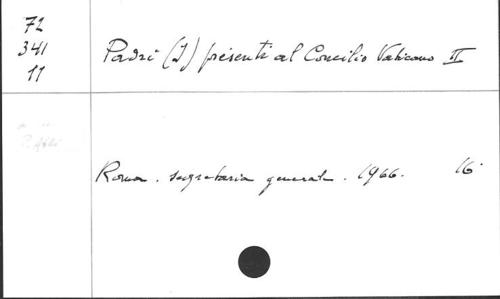 72
341
11
Padri (I) presenti al Concilio Vaticano II
Roma. segretaria general. 1966. 16°